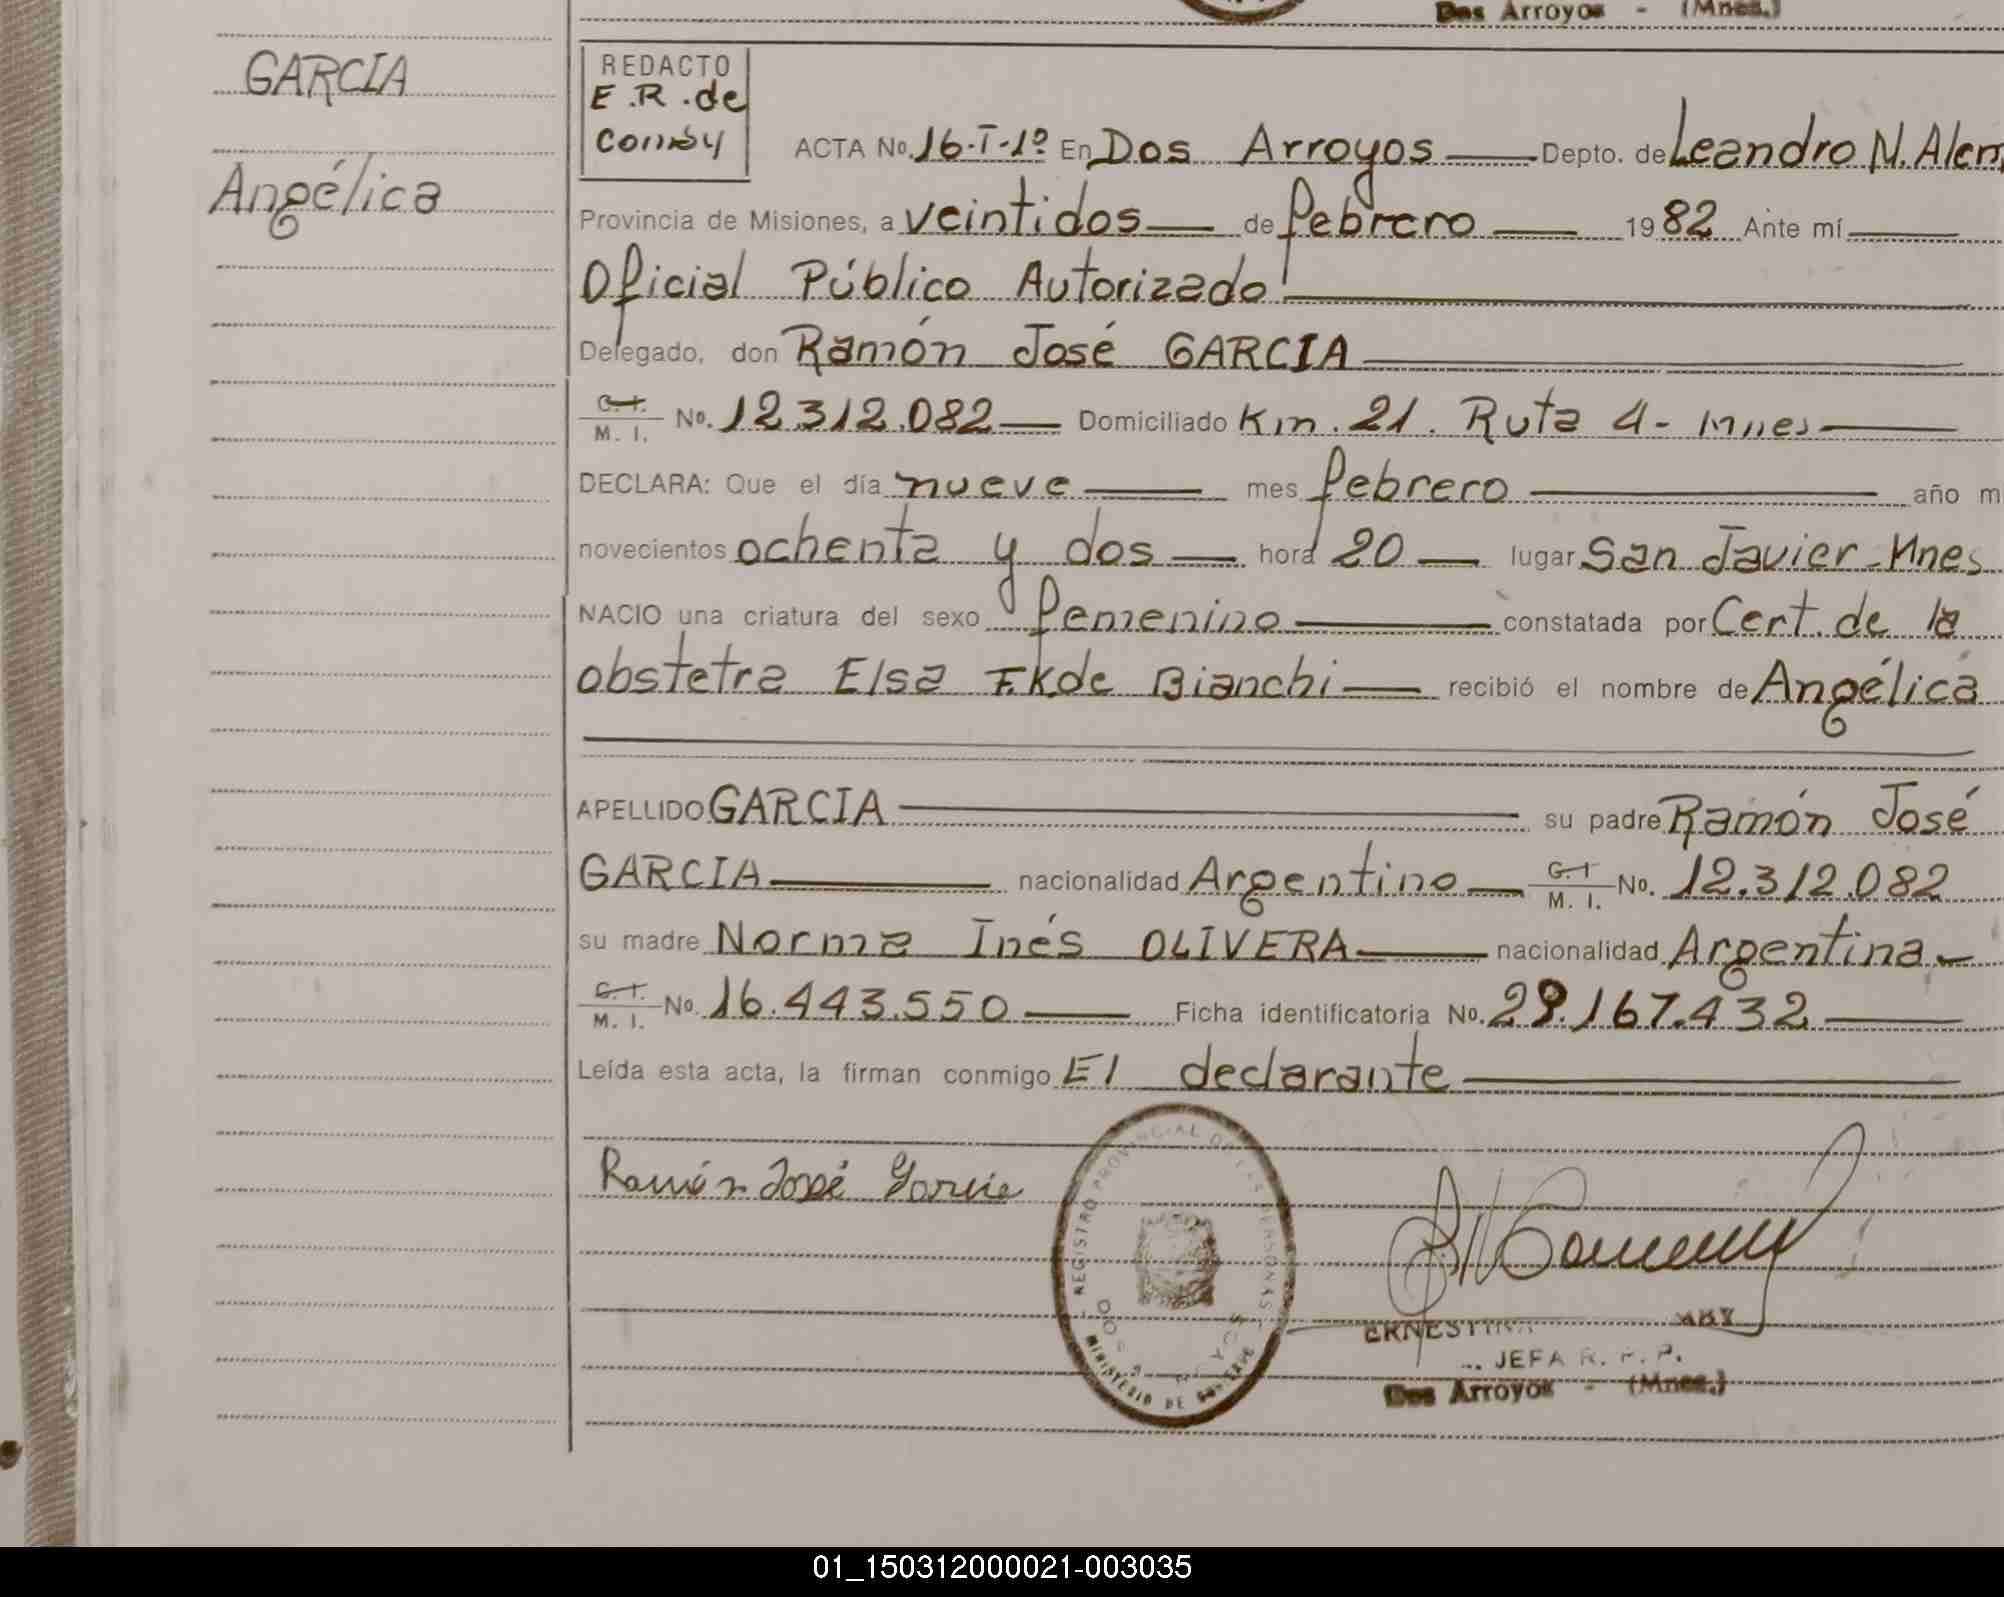 Dos Arroyos - (Mnes.)
GARCIA
Angélica
REDACTO
E.R. de
ACTA No. 16-I-1º En Dos Arroyos Depto. de Leandro N. Alem
Provincia de Misiones, a veintidos de febrero 1982 Ante mí
Oficial Público Autorizado
Delegado, don Ramón José GARCIA
C. I. M. I. No. 12.312.082 Domiciliado Km. 21. Ruta 4- Mnes
DECLARA: Que el día nueve mes febrero año m
novecientos ochenta y dos hora 20 lugar San Javier - Mnes
NACIO una criatura del sexo femenino constatada por Cert. de la
obstetra Elsa F.K de Bianchi recibió el nombre de Angélica
APELLIDO GARCIA su padre Ramón José
GARCIA nacionalidad Argentino C. I. M. I. No. 12.312.082
su madre Norma Inés OLIVERA nacionalidad Argentina
C. I. M. I. No. 16.443.550 Ficha identificatoria No. 29.167.432
Leída esta acta, la firman conmigo El declarante
Ramón José Garcia
REGISTRO PROVINCIAL DE LAS PERSONAS
MINISTERIO DE GOBIERNO
ERNESTINA
JEFA R. P. P.
Dos Arroyos - (Mnes.)
01_150312000021-003035